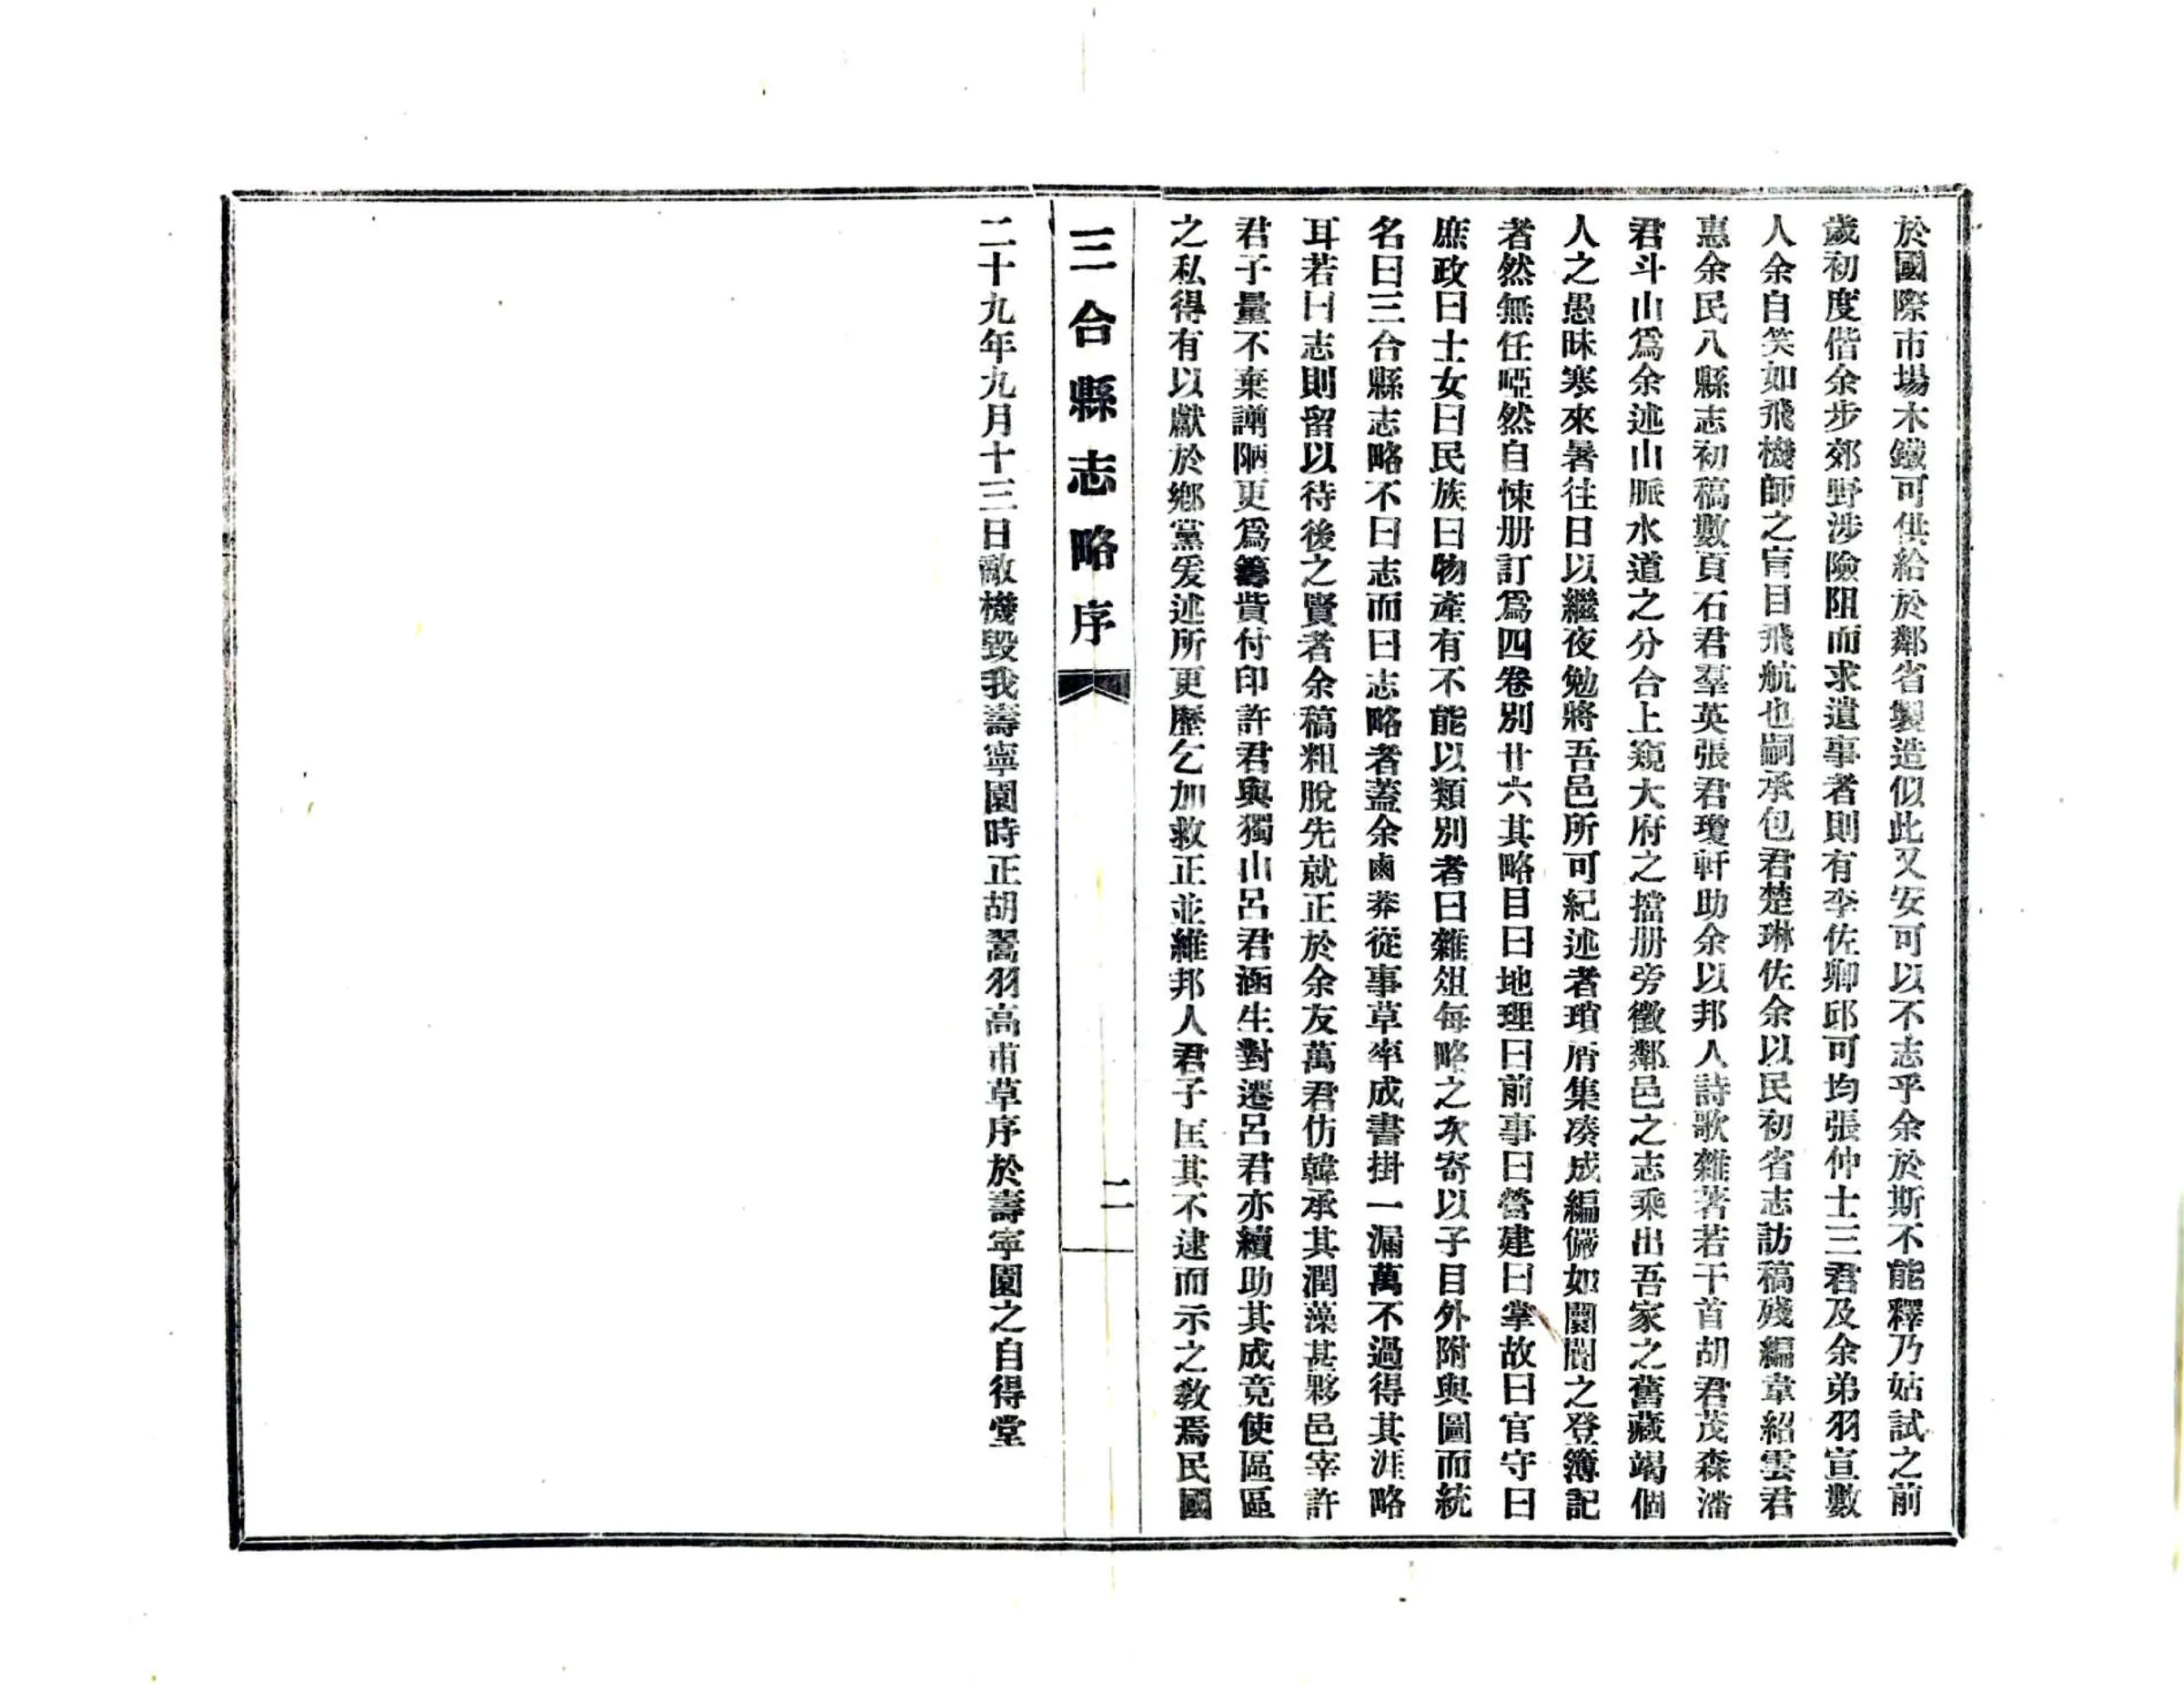 於國際市場木鐵可供給於鄰省製造似此又安可以不志乎余於斯不能釋乃姑試之前
歲初度偕余步郊野涉險阻而求遺事者則有李佐卿邱可均張仲士三君及余弟羽宣數
人余自笑如飛機師之盲目飛航也嗣承包君楚琳佐余以民初省志訪稿殘編韋紹雲君
惠余民八縣志初稿數頁石君羣英張君瓊軒助余以邦人詩歌雜著若干首胡君茂森潘
君斗山爲余述山脈水道之分合上窺大府之擋册旁徵鄰邑之志乘出吾家之舊藏竭個
人之愚昧寒來暑往日以繼夜勉將吾邑所可紀述者瑣屑集凑成編儼如闤闠之登簿記
者然無任啞然自悚册訂爲四卷別廿六其略目曰地理曰前事曰營建曰掌故曰官守曰
庶政曰士女曰民族曰物產有不能以類別者曰雜俎每略之次寄以子目外附輿圖而統
名曰三合縣志略不曰志而曰志略者蓋余鹵莽從事草率成書掛一漏萬不過得其涯略
耳若曰志則留以待後之賢者余稿粗脫先就正於余友萬君仿韓承其潤藻甚夥邑宰許
君子量不棄譾陋更爲籌貲付印許君與獨山呂君涵生對遷呂君亦續助其成竟使區區
之私得有以獻於鄉黨爰述所更歷乞加敎正並維邦人君子匡其不逮而示之敎焉民國
三合縣志略序
二
二十九年九月十三日敵機毀我壽寧園時正胡翯羽高甫草序於壽寧園之自得堂